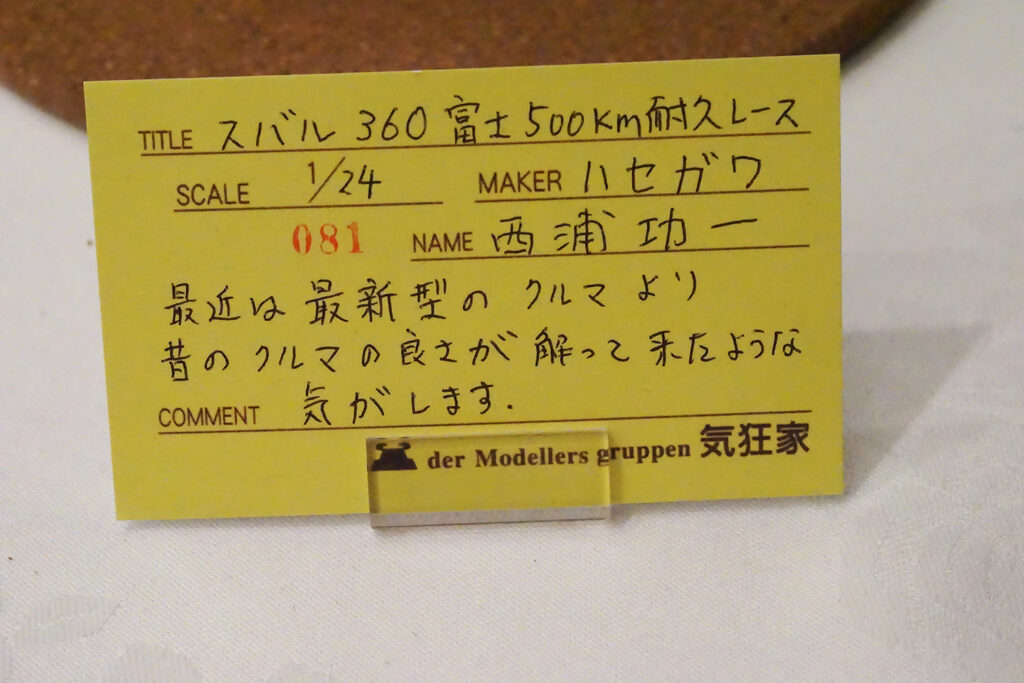 TITLE スバル 360 富士500Km耐久レース
SCALE 1/24 MAKER ハセガワ
081 NAME 西浦 功一
最近は最新型のクルマより
昔のクルマの良さが解って来たような
COMMENT 気がします.
der Modellers gruppen 気狂家